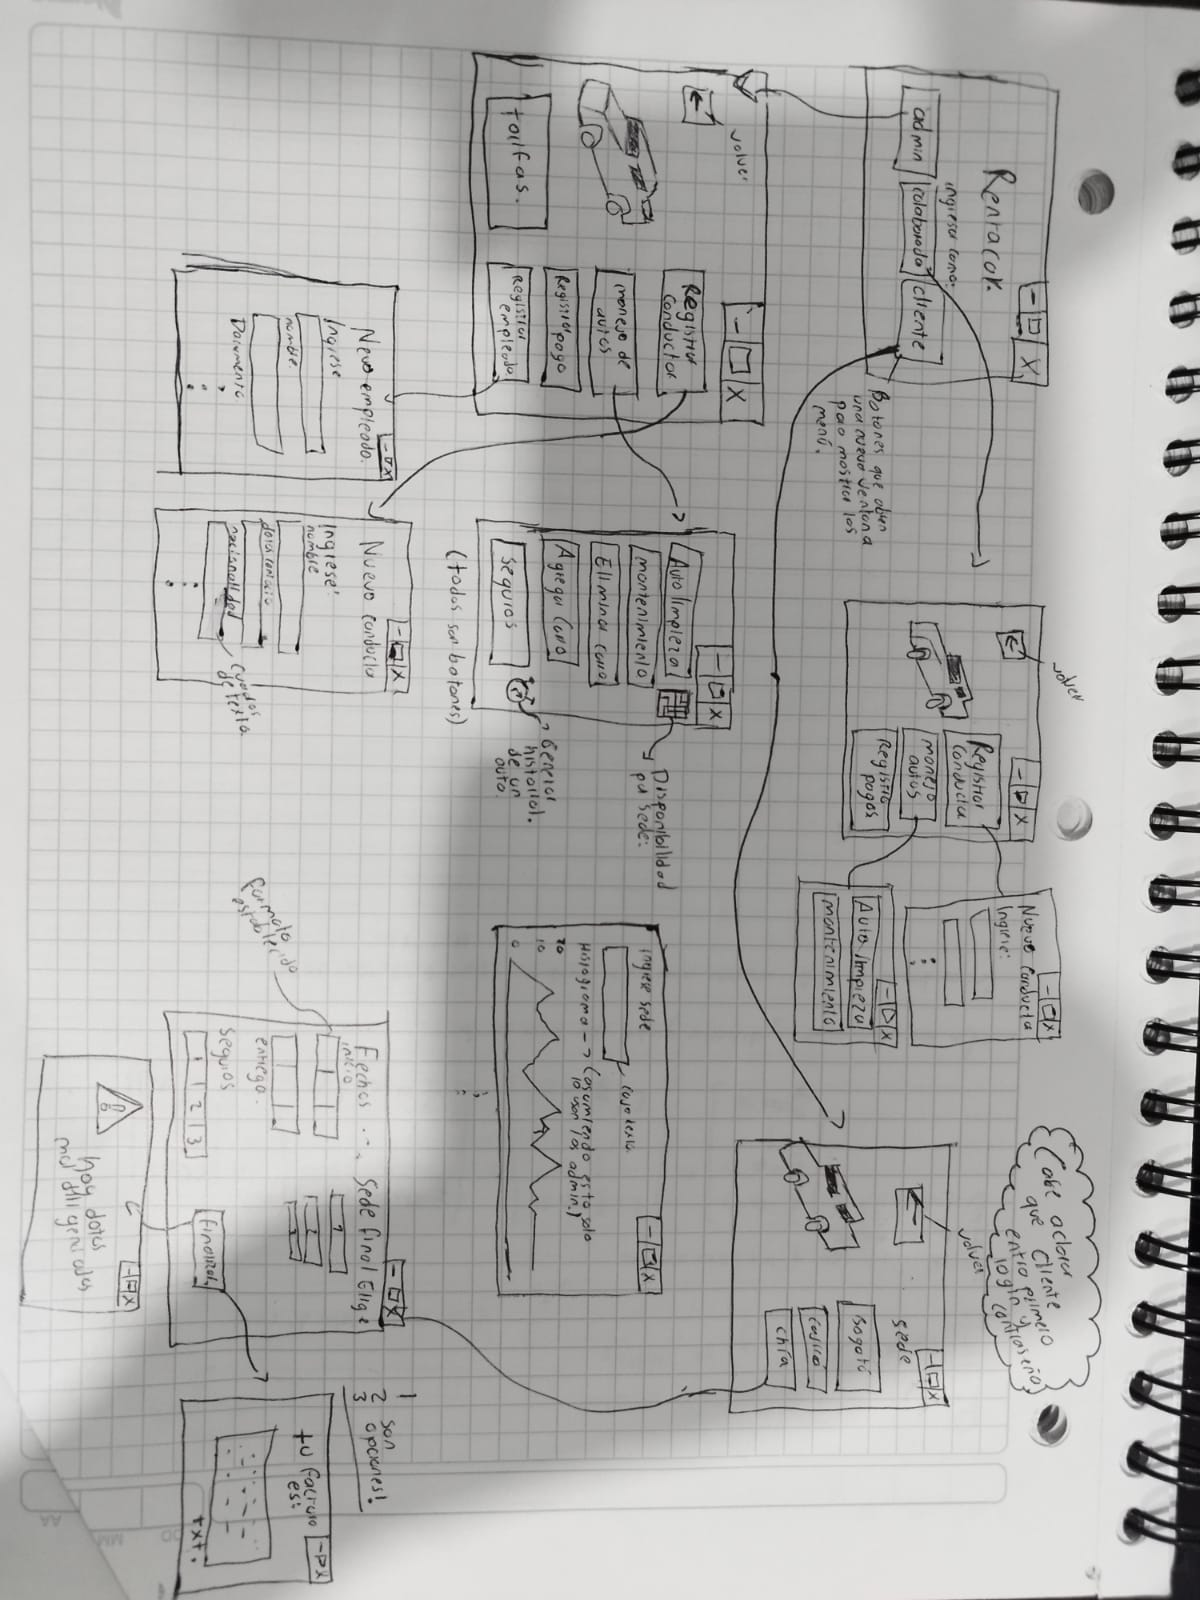 Rentacar.
ingresa como:
admin
colaborado
cliente
Botones que abren
una nueva ventana
para mostrar los
menú.
volver
Registrar
conducta
manejo
autos
Registro
pagos
Nuevo conducta
Ingrese:
Auto/limpieza
mantenimiento
Cabe aclarar
que cliente
entra primero
login y
contraseña
volver
sede
Bogotá
Cajicá
chía
volver
Registrar
conductor
manejo de
autos
Registrar pago
Registrar
empleado
tarifas.
Auto/limpieza
mantenimiento
Eliminar carro
Agregar carro
seguros
(todos son botones)
Disponibilidad
por sede:
Generar
historial.
de un
auto.
Ingrese sede
caja texto.
Histograma -> (asumiendo esto solo
lo usan los admin.)
20
10
0
Nuevo empleado.
Ingrese
nombre.
Documento
Nuevo conducta
Ingrese:
nombre
datos contacto
nacionalidad
cuadros
de texto.
Fechas
inicio
entrega.
formato
establecido
Sede final Elige
1
2
3
seguros
1 2 3
finalizar.
1
2
3
son
opciones!
tu factura
es:
txt.
hay datos
mal diligenciados